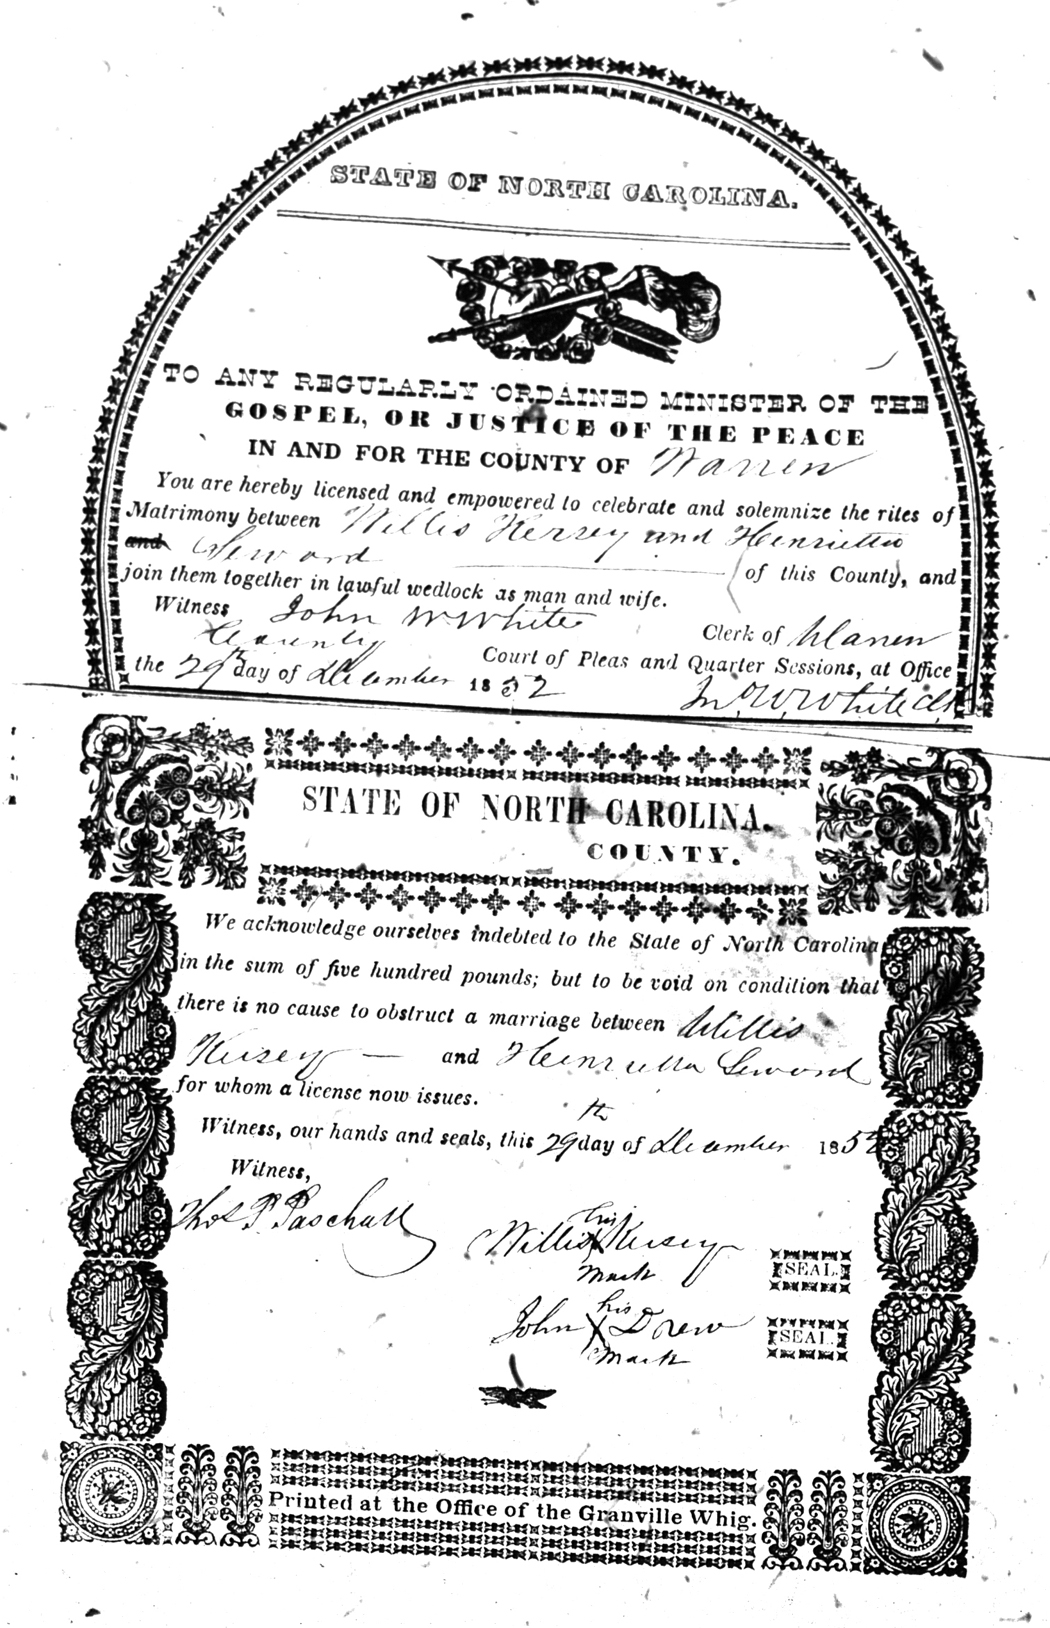 STATE OF NORTH CAROLINA.
TO ANY REGULARLY ORDAINED MINISTER OF THE
GOSPEL, OR JUSTICE OF THE PEACE
IN AND FOR THE COUNTY OF Warren
You are hereby licensed and empowered to celebrate and solemnize the rites of
Matrimony between Willis Kersey and Henrietta
and Seward of this County, and
join them together in lawful wedlock as man and wife.
Witness John W White Clerk of Warren
County Court of Pleas and Quarter Sessions, at Office
the 29th day of December 1852
Jno W. White Clk
STATE OF NORTH CAROLINA.
COUNTY.
We acknowledge ourselves indebted to the State of North Carolina
in the sum of five hundred pounds; but to be void on condition that
there is no cause to obstruct a marriage between Willis
Kersey and Henrietta Seward
for whom a license now issues.
Witness, our hands and seals, this 29th day of December 1852
Witness,
Thos P. Paschall
his
Willis X Kersey SEAL.
mark
his
John X Drew SEAL.
mark
Printed at the Office of the Granville Whig.